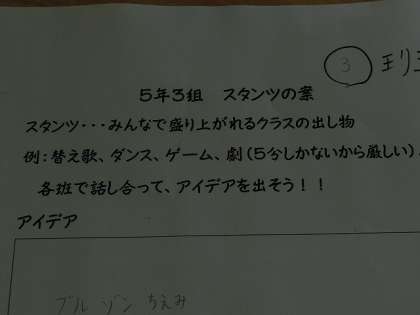 ③ 班
5年3組 スタンツの案
スタンツ・・・みんなで盛り上がれるクラスの出し物
例：替え歌、ダンス、ゲーム、劇(5分しかないから厳しい)
各班で話し合って、アイデアを出そう！！
アイデア
ブルゾン ちえみ